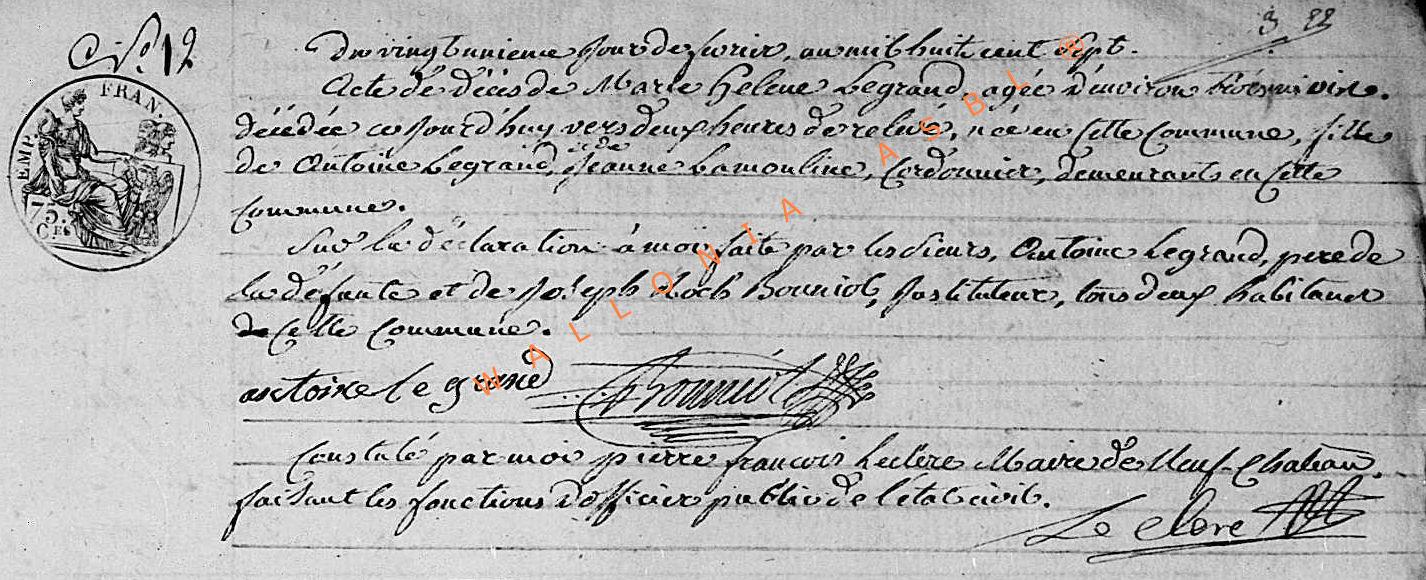 N.° 12
3. 22
EMP. FRAN.
75. CES
Du vingt unieme Jour de fevrier, an mil huit cent Sept.
Acte de décès de Marie helene Legrand, agée d'environ
décédée ce Jourd'huy vers deux heures de relevé, née en Cette Commune, fille
et de
de Antoine Legrand, Jeanne Lamouline, Cordonnier, demeurants en Cette
Commune.
Sur la déclaration à moi faite par les Sieurs, Antoine Legrand, pere de
la défunte et de Joseph Roch Bouniol, Instituteur, tous deux habitants
de Cette Commune.
antoine le grand Bouniol
Constaté par moi pierre françois Leclere Maire de Neuf-Chateau,
faisant les fonctions d'officier public de l'état civil.
Le clere
WALLONIA ASBL ®